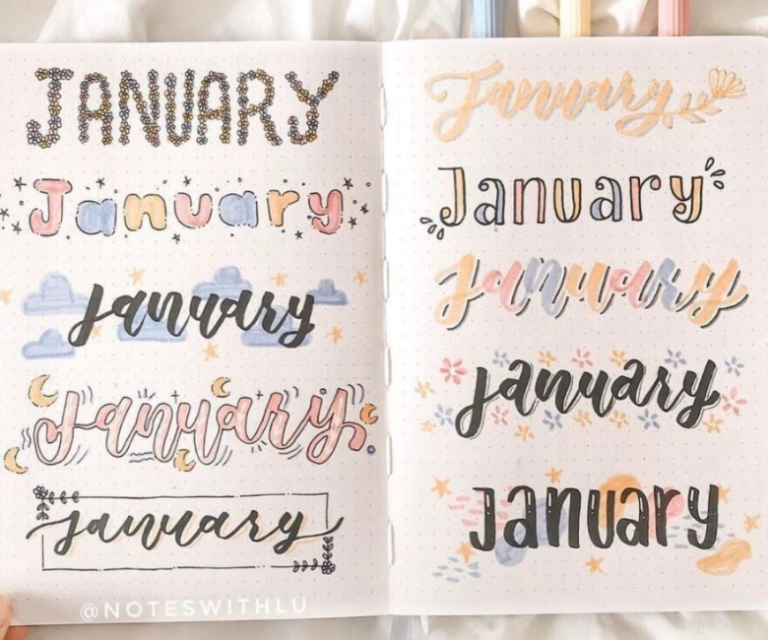 JANUARY
January
january
january
january
@NOTESWITHLU
January
January
january
january
January